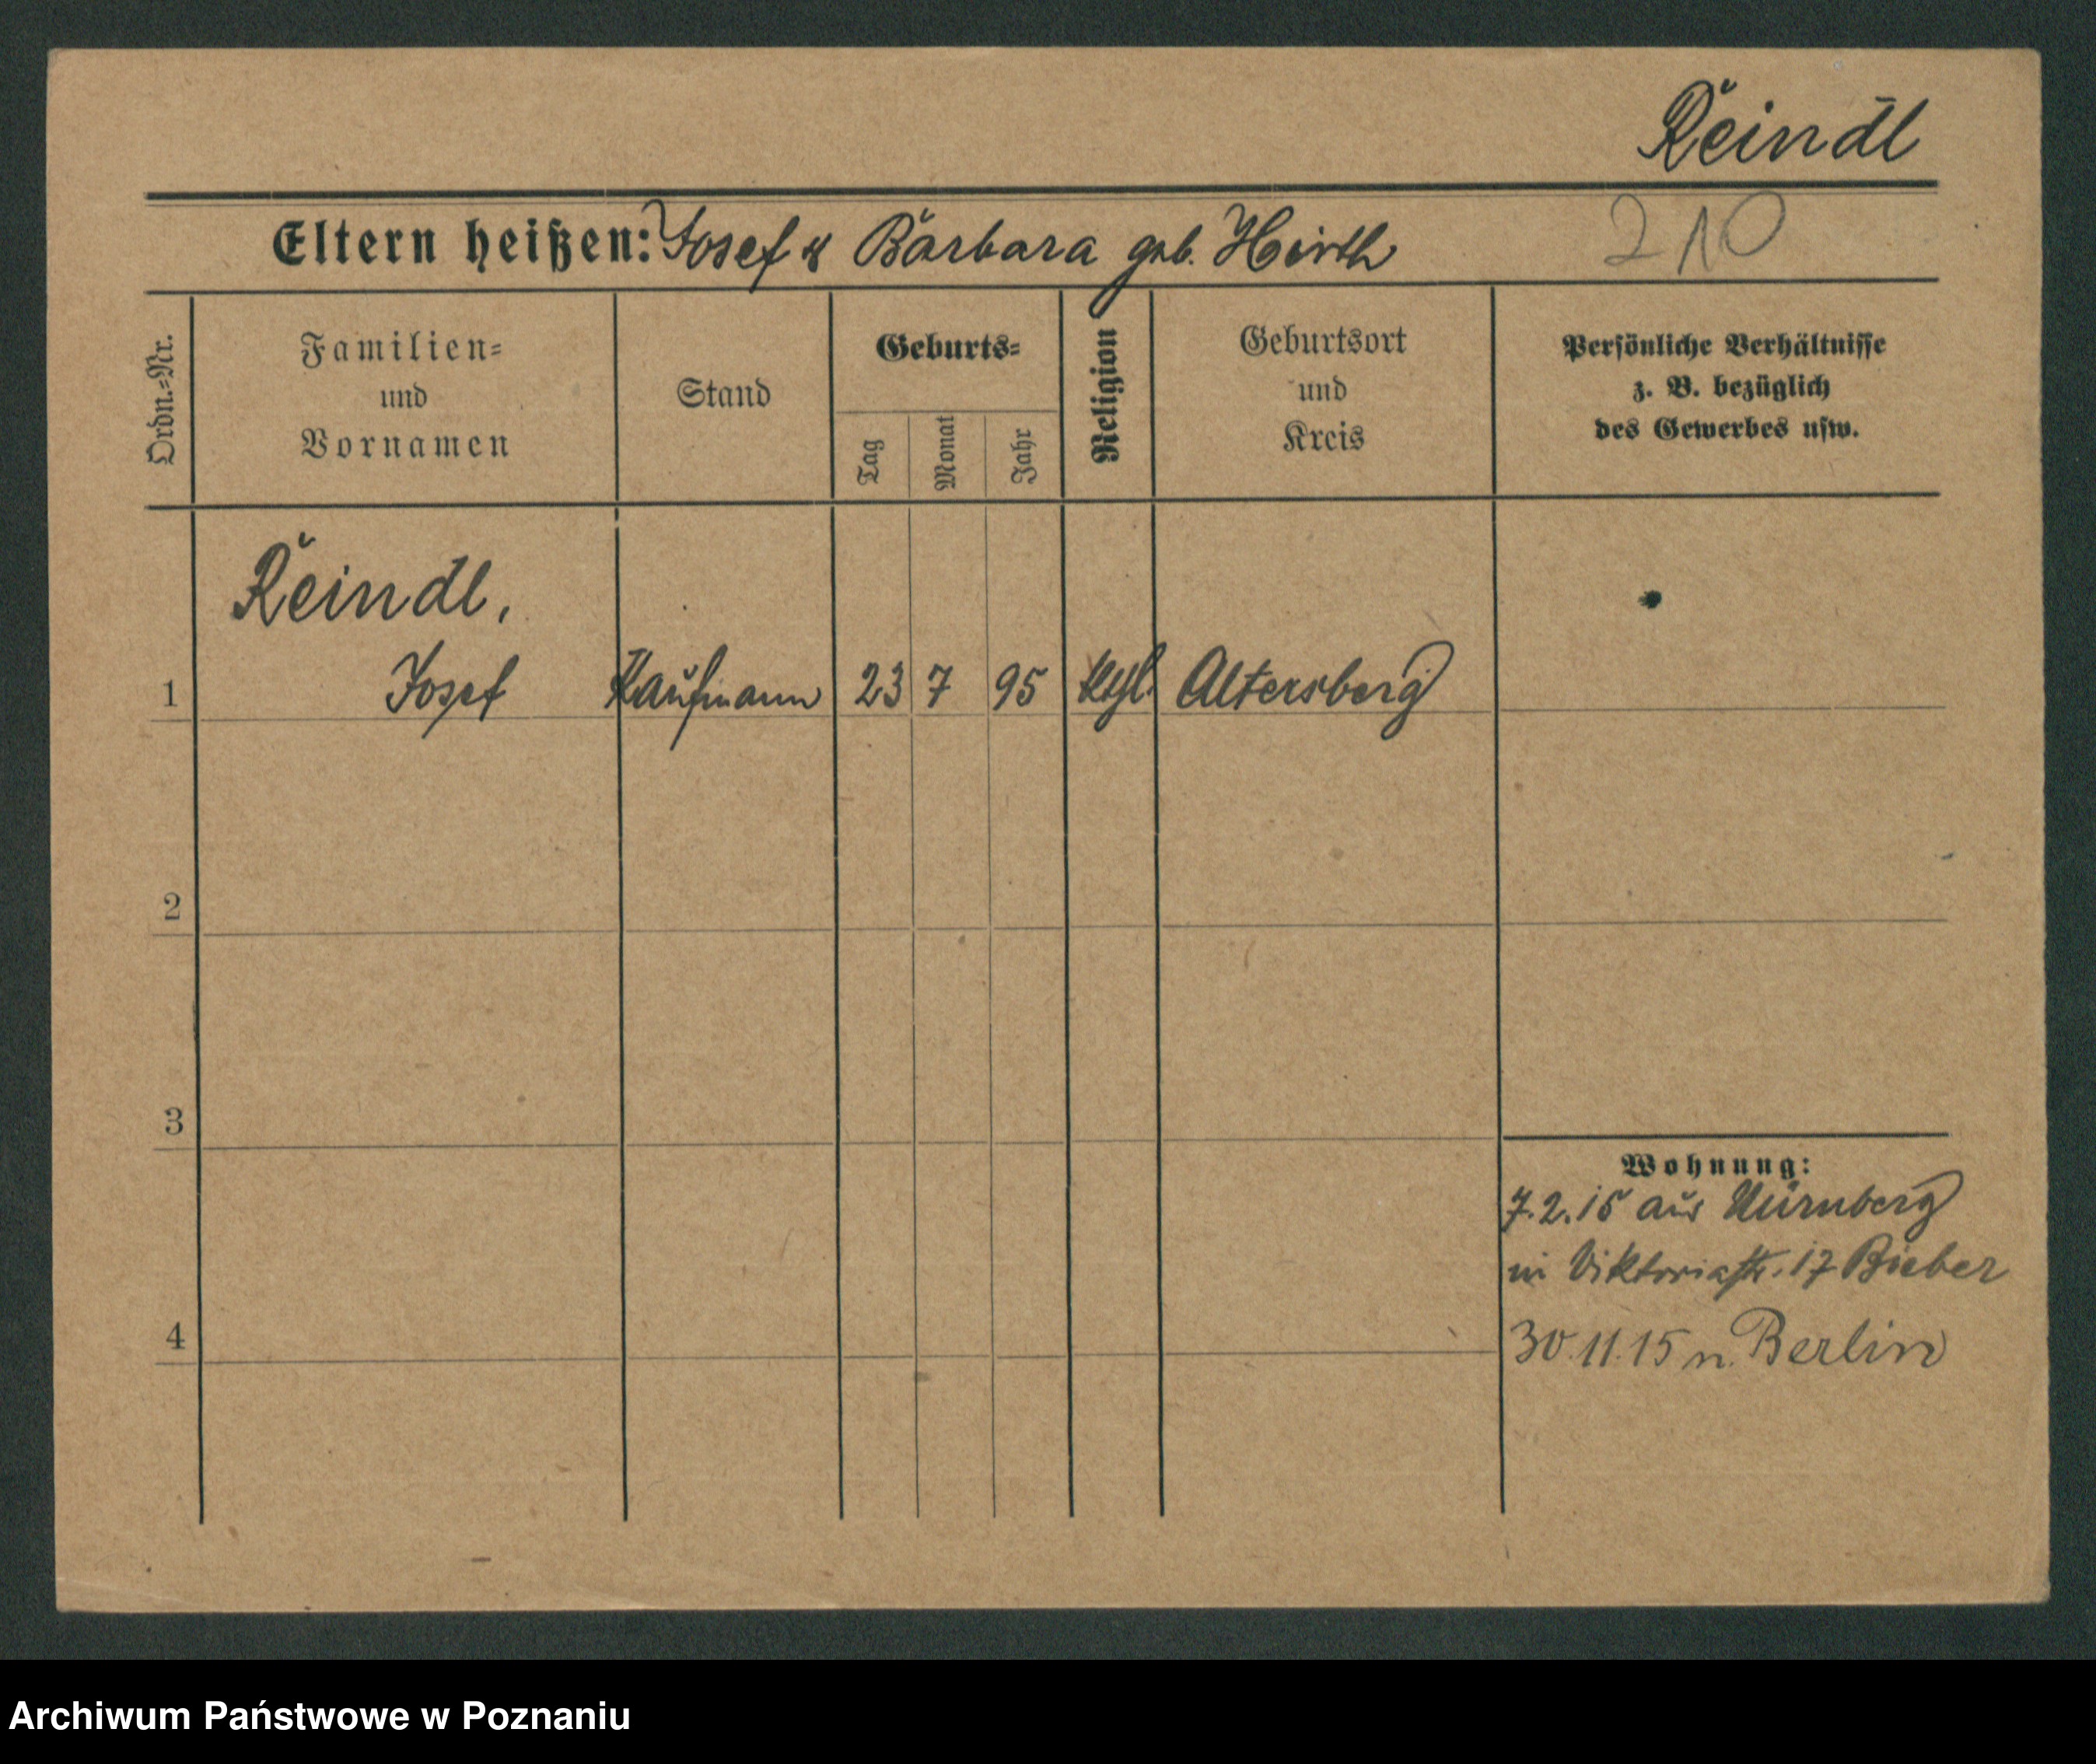 Reindl
Eltern heißen: Josef & Barbara geb. Hirth
210
Ordn.-Nr.
Familien-
und
Vornamen
Stand
Geburts-
Tag
Monat
Jahr
Religion
Geburtsort
und
Kreis
Persönliche Verhältnisse
z. B. bezüglich
des Gewerbes usw.
Reindl,
1 Josef Kaufmann 23 7 95 ktl. Altersberg
2
3
Wohnung:
7.2.15 aus Nürnberg
in Viktoriastr. 17 Bieber
4
30.11.15 n. Berlin
Archiwum Państwowe w Poznaniu